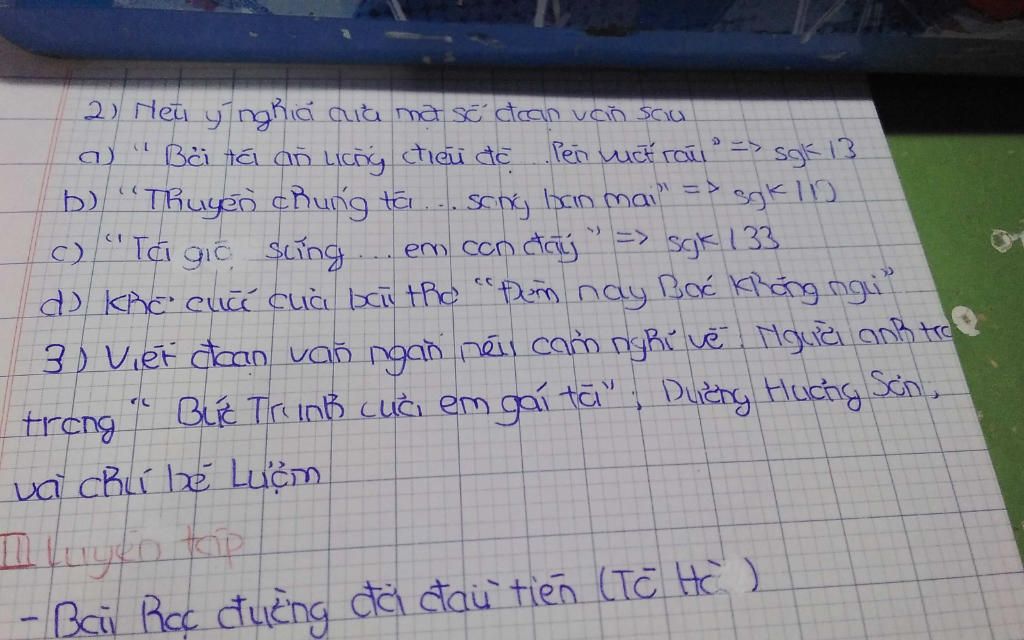 2) Nêu ý nghĩa của một số đoạn văn sau
a) "Bởi tôi ăn uống điều độ... lên vuốt râu" => sgk 13
b) "Thuyền chúng tôi... sóng ban mai" => sgk 110
c) "Tôi giơ súng... em con đấy" => sgk 133
d) Khổ cuối của bài thơ "Đêm nay Bác không ngủ"
3) Viết đoạn văn ngắn nêu cảm nghĩ về: Người anh tro
trong "Bức Tranh của em gái tôi"; Dượng Hương Sơn,
và chú bé Lượm
II Luyện tập
- Bài Học đường đời đầu tiên (Tô Hoài)